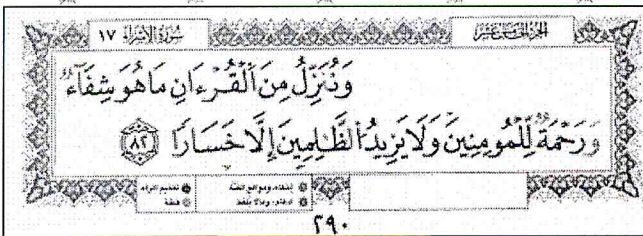 الجزء الخامس عشر
سُورَةُ الإِسْرَاءِ ١٧
وَنُنَزِّلُ مِنَ ٱلْقُرْءَانِ مَا هُوَ شِفَآءٌ
وَرَحْمَةٌ لِّلْمُؤْمِنِينَ وَلَا يَزِيدُ ٱلظَّٰلِمِينَ إِلَّا خَسَارًا ٨٢
إخفاء، ومواقع الغنة
تفخيم الراء
ادغام، وما لا يلفظ
قلقلة
٢٩٠